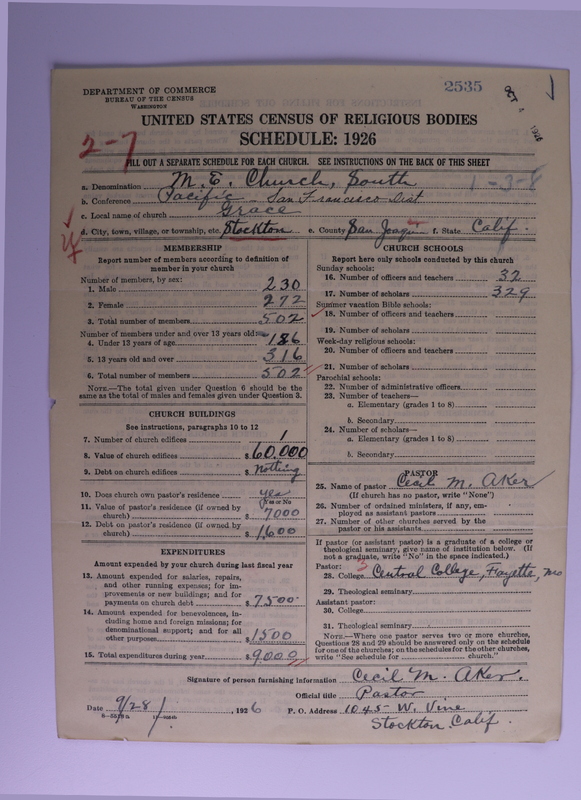 DEPARTMENT OF COMMERCE
BUREAU OF THE CENSUS
WASHINGTON
2535
UNITED STATES CENSUS OF RELIGIOUS BODIES
SCHEDULE: 1926
2-7
FILL OUT A SEPARATE SCHEDULE FOR EACH CHURCH. SEE INSTRUCTIONS ON THE BACK OF THIS SHEET
a. Denomination M. E. Church, South 1-3-8
b. Conference Pacific - San Francisco Dist
c. Local name of church Grace
d. City, town, village, or township, etc. Stockton e. County San Joaquin f. State Calif.
MEMBERSHIP
Report number of members according to definition of
member in your church
Number of members, by sex:
1. Male 230
2. Female 272
3. Total number of members 502
Number of members under and over 13 years old:
4. Under 13 years of age 186
5. 13 years old and over 316
6. Total number of members 502
NOTE.—The total given under Question 6 should be the
same as the total of males and females given under Question 3.
CHURCH BUILDINGS
See instructions, paragraphs 10 to 12
7. Number of church edifices 1
8. Value of church edifices $ 60,000
9. Debt on church edifices $ nothing
10. Does church own pastor's residence yes
(Yes or No
11. Value of pastor's residence (if owned by
church) $ 7000
12. Debt on pastor's residence (if owned by
church) $ 1,600
EXPENDITURES
Amount expended by your church during last fiscal year
13. Amount expended for salaries, repairs,
and other running expenses; for im-
provements or new buildings; and for
payments on church debt $ 7500
14. Amount expended for benevolences, in-
cluding home and foreign missions; for
denominational support; and for all
other purposes $ 1500
15. Total expenditures during year $ 9000
CHURCH SCHOOLS
Report here only schools conducted by this church
Sunday schools:
16. Number of officers and teachers 32
17. Number of scholars 329
Summer vacation Bible schools:
18. Number of officers and teachers
19. Number of scholars
Week-day religious schools:
20. Number of officers and teachers
21. Number of scholars
Parochial schools:
22. Number of administrative officers
23. Number of teachers—
a. Elementary (grades 1 to 8)
b. Secondary
24. Number of scholars—
a. Elementary (grades 1 to 8)
b. Secondary
PASTOR
25. Name of pastor Cecil M. Aker
(If church has no pastor, write "None")
26. Number of ordained ministers, if any, em-
ployed as assistant pastors
27. Number of other churches served by the
pastor or his assistants
If pastor (or assistant pastor) is a graduate of a college or
theological seminary, give name of institution below. (If
not a graduate, write "No" in the space indicated.)
Pastor: 3
28. College Central College, Fayette, Mo
29. Theological seminary
Assistant pastor:
30. College
31. Theological seminary
NOTE.—Where one pastor serves two or more churches,
Questions 28 and 29 should be answered only on the schedule
for one of the churches; on the schedules for the other churches,
write "See schedule for church."
Signature of person furnishing information Cecil M. Aker.
Official title Pastor
Date 9/28/, 1926 P. O. Address 1045 W. Vine
Stockton, Calif.